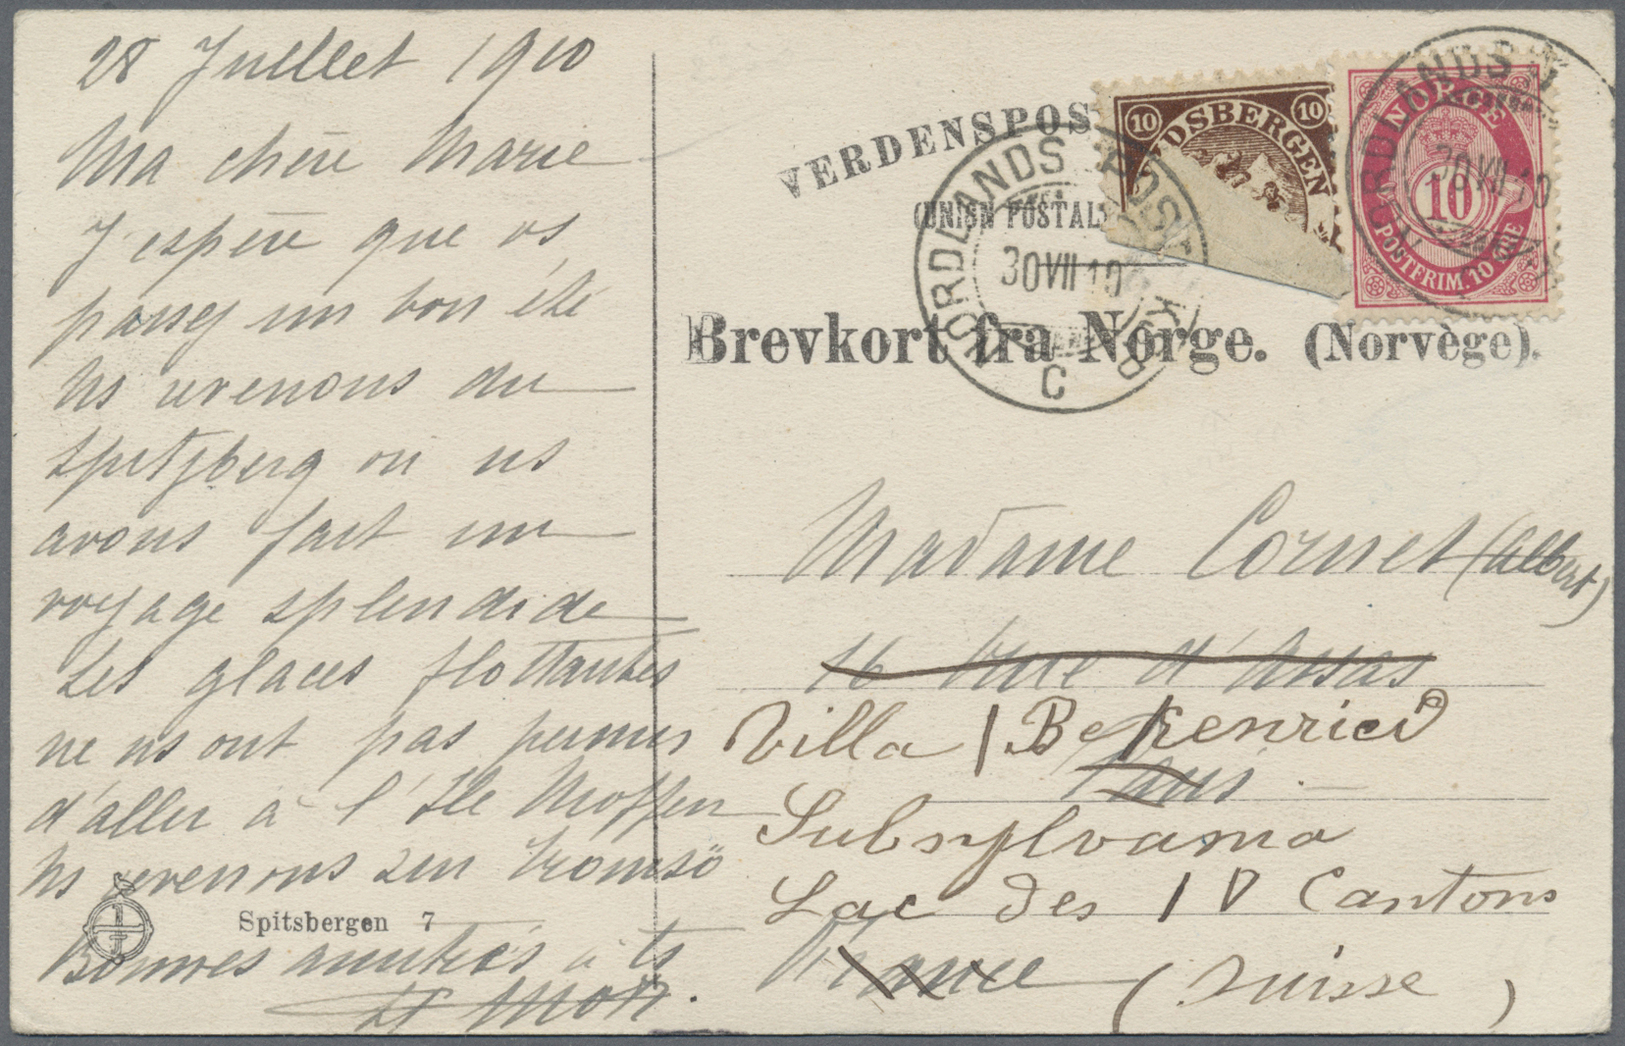 28 Juillet 1910
Ma chère Marie
J'espère que vs
passez un bon été
Ns revenons du
Spitzberg où ns
avons fait un
voyage splendide
Les glaces flottantes
ne ns ont pas permis
d'aller à l'Ile Moffen
Ns revenons sur Tromsö
Bonnes amitiés à ts
Spitsbergen 7
VERDENSPOS
(UNION POSTAL
Brevkort fra Norge. (Norvège).
10 10
RDSBERGEN
NORGE
10
POSTFRIM. 10 ØRE
NORDLANDS POSTEXP
30 VII 10
C
NORDLANDS
30 VII 10
Madame Cornet (Albert)
16 Rue d'Assas
Villa
Paris
Lac des IV Cantons
France (Suisse)